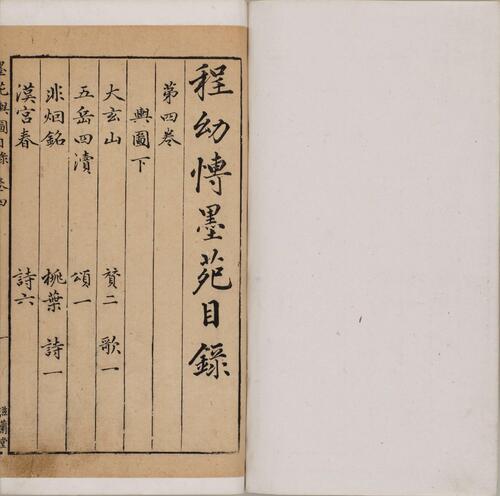 程幼慱墨苑目錄
第四卷
輿圖下
大玄山 贊二 歌一
五岳四瀆 頌一
非烟銘 桃葉 詩一
漢宮春 詩六
墨苑輿圖目錄 卷四 一 滋蘭堂